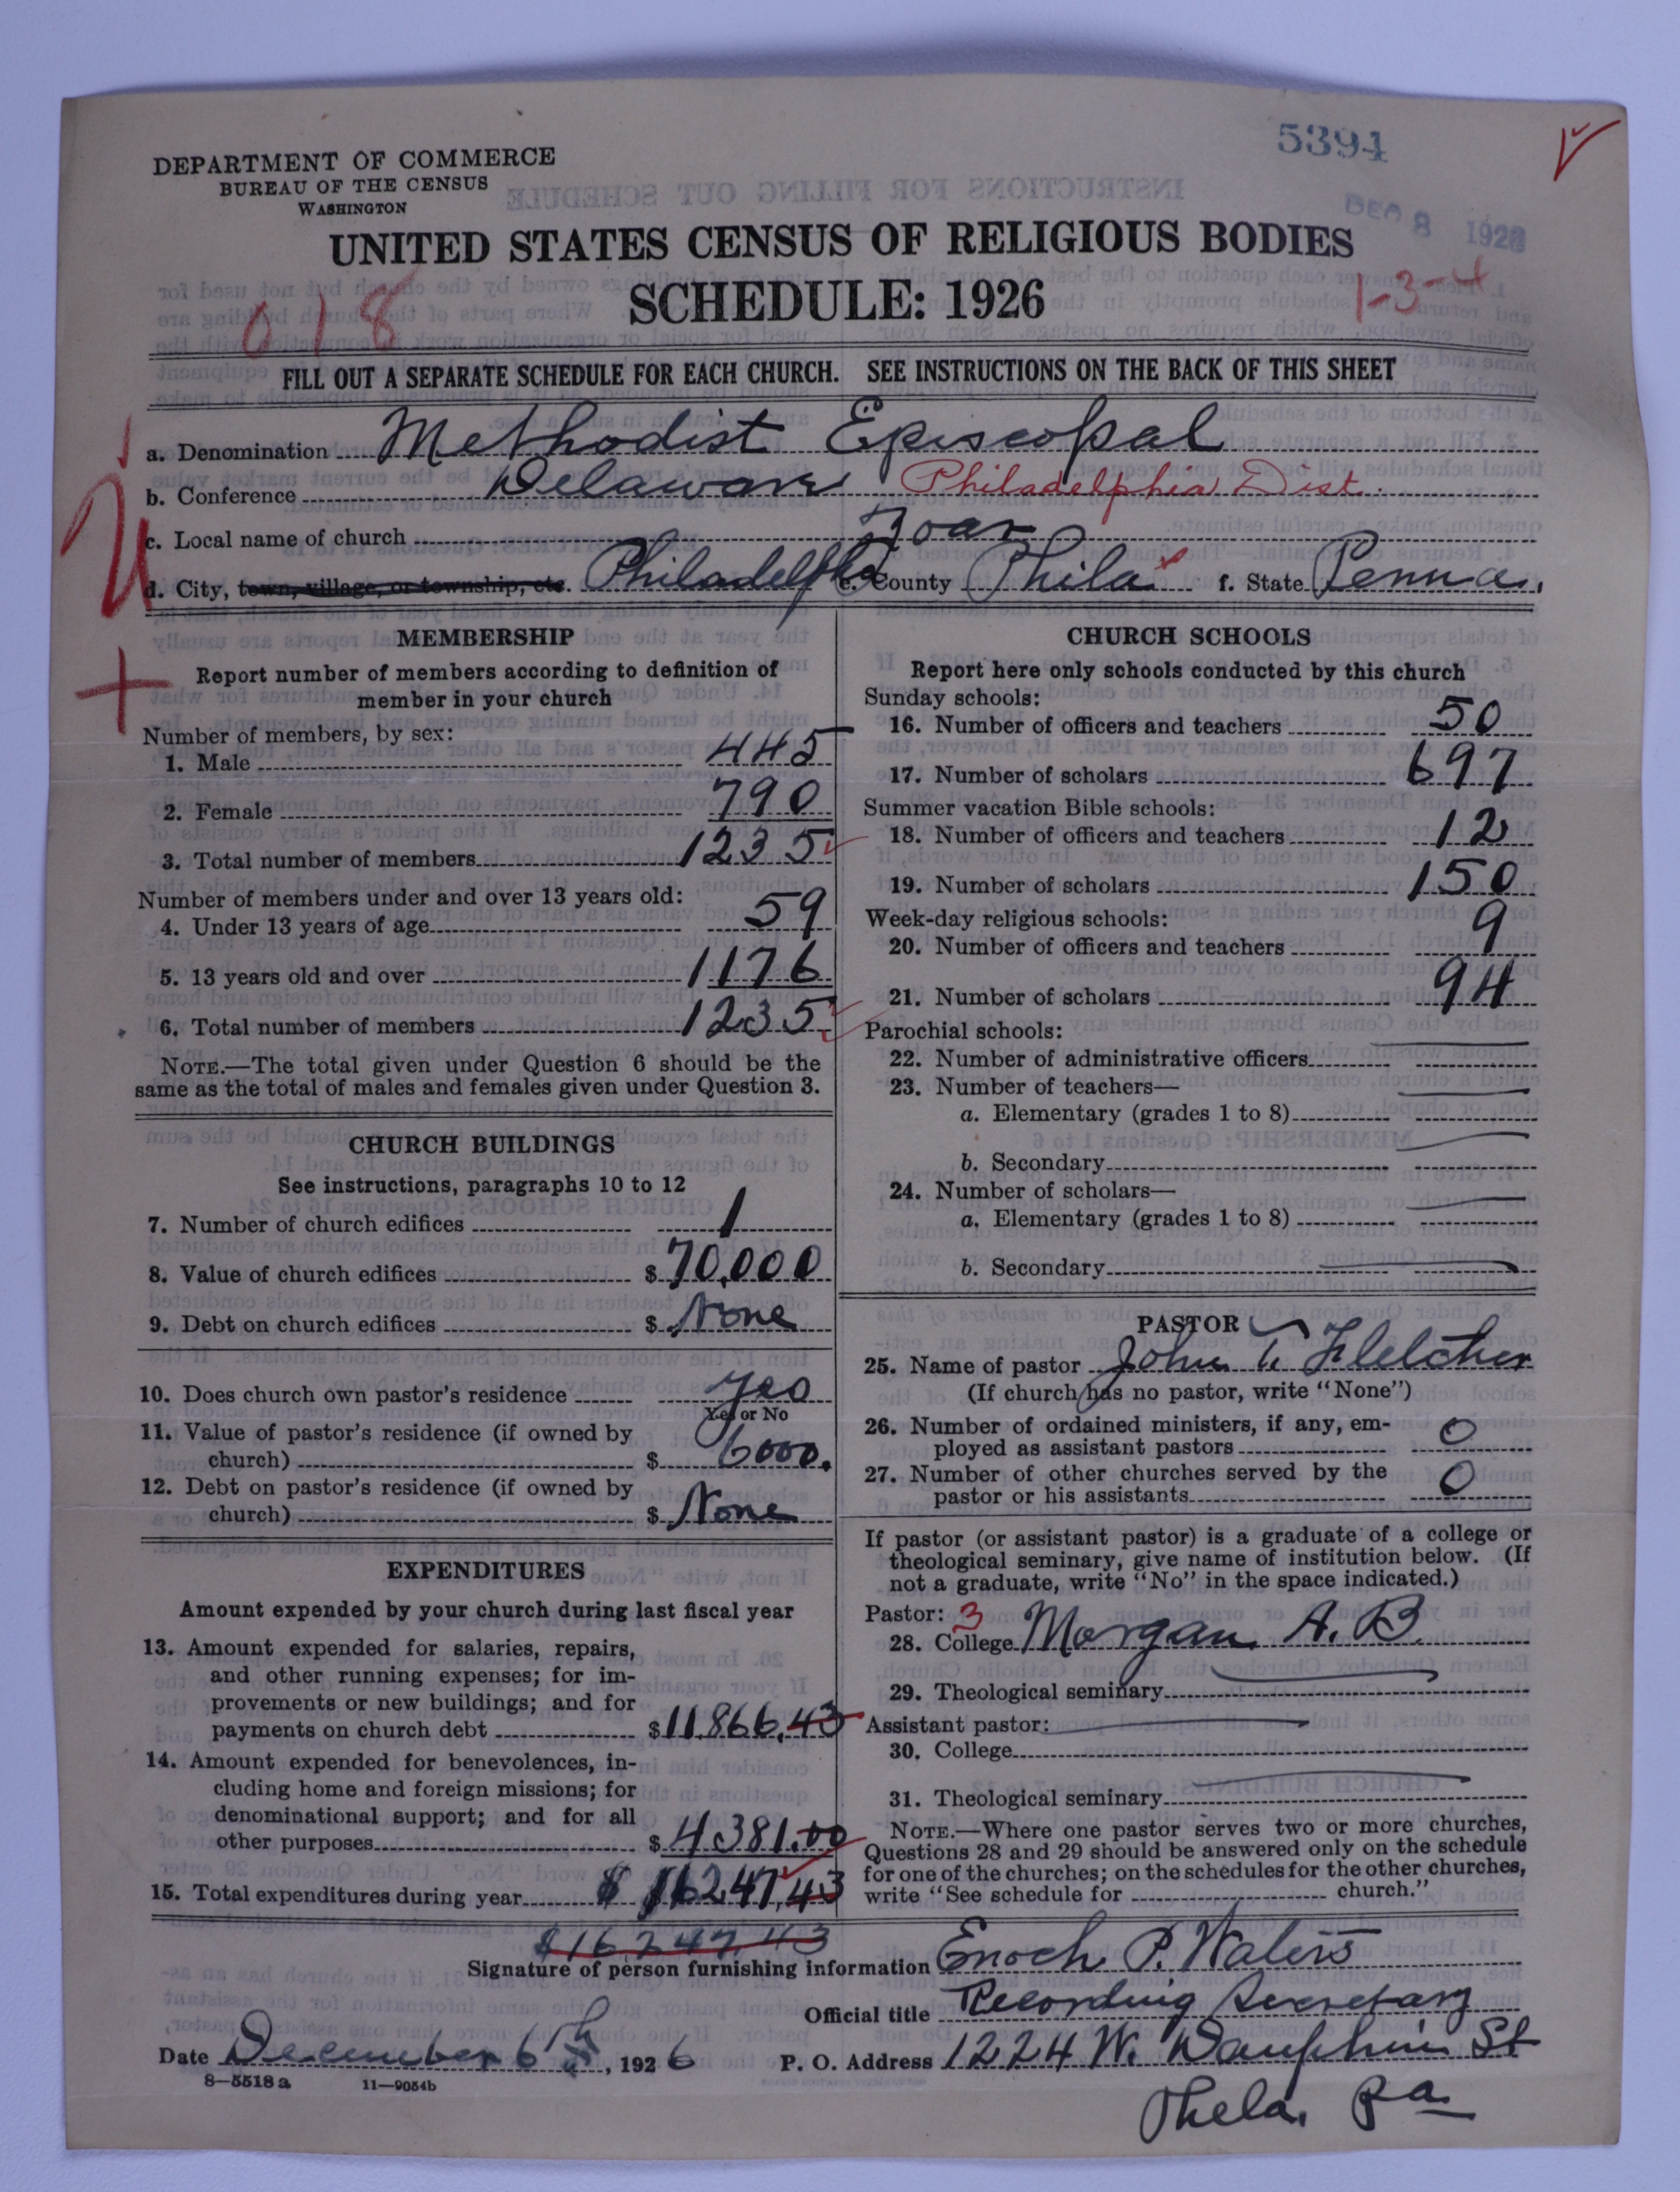 5394
DEPARTMENT OF COMMERCE
BUREAU OF THE CENSUS
WASHINGTON
DEC 8 1926
UNITED STATES CENSUS OF RELIGIOUS BODIES
SCHEDULE: 1926
018
1-3-4
FILL OUT A SEPARATE SCHEDULE FOR EACH CHURCH. SEE INSTRUCTIONS ON THE BACK OF THIS SHEET
a. Denomination Methodist Episcopal
b. Conference Delaware Philadelphia Dist.
c. Local name of church Zoar
d. City, town, village, or township, etc. Philadelphia e. County Phila f. State Penna.
MEMBERSHIP
Report number of members according to definition of
member in your church
Number of members, by sex:
1. Male 445
2. Female 790
3. Total number of members 1235
Number of members under and over 13 years old:
4. Under 13 years of age 59
5. 13 years old and over 1176
6. Total number of members 1235
NOTE.—The total given under Question 6 should be the
same as the total of males and females given under Question 3.
CHURCH BUILDINGS
See instructions, paragraphs 10 to 12
7. Number of church edifices 1
8. Value of church edifices $ 70,000
9. Debt on church edifices $ None
10. Does church own pastor's residence yes
Yes or No
11. Value of pastor's residence (if owned by
church) $ 6000.
12. Debt on pastor's residence (if owned by
church) $ None
EXPENDITURES
Amount expended by your church during last fiscal year
13. Amount expended for salaries, repairs,
and other running expenses; for im-
provements or new buildings; and for
payments on church debt $11,866.43
14. Amount expended for benevolences, in-
cluding home and foreign missions; for
denominational support; and for all
other purposes $ 4,381.00
15. Total expenditures during year $ 16247.43
$16247.43
CHURCH SCHOOLS
Report here only schools conducted by this church
Sunday schools:
16. Number of officers and teachers 50
17. Number of scholars 697
Summer vacation Bible schools:
18. Number of officers and teachers 12
19. Number of scholars 150
Week-day religious schools:
20. Number of officers and teachers 9
21. Number of scholars 94
Parochial schools:
22. Number of administrative officers
23. Number of teachers—
a. Elementary (grades 1 to 8)
b. Secondary
24. Number of scholars—
a. Elementary (grades 1 to 8)
b. Secondary
PASTOR
25. Name of pastor John Fletcher
(If church has no pastor, write "None")
26. Number of ordained ministers, if any, em-
ployed as assistant pastors 0
27. Number of other churches served by the
pastor or his assistants 0
If pastor (or assistant pastor) is a graduate of a college or
theological seminary, give name of institution below. (If
not a graduate, write "No" in the space indicated.)
Pastor: 3
28. College Morgan A. B.
29. Theological seminary
Assistant pastor:
30. College
31. Theological seminary
NOTE.—Where one pastor serves two or more churches,
Questions 28 and 29 should be answered only on the schedule
for one of the churches; on the schedules for the other churches,
write "See schedule for church."
Signature of person furnishing information Enoch P. Waters
Official title Recording Secretary
Date December 6th, 1926 P. O. Address 1224 W. Dauphin St
Phela. Pa
8—5518a 11—9054b